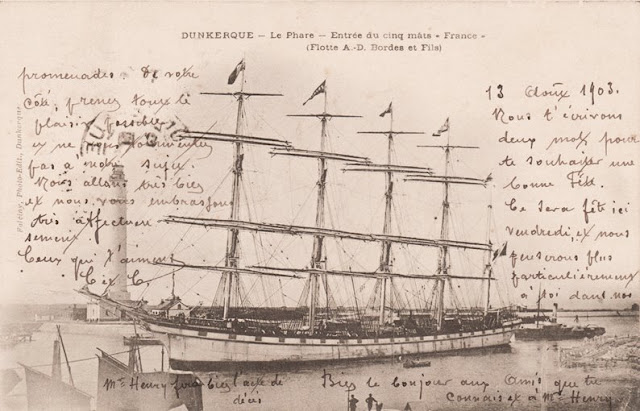 DUNKERQUE – Le Phare – Entrée du cinq mâts « France »
(Flotte A.-D. Bordes et Fils)
13 Août 1903.
Nous t'écrivons
deux mots pour
te souhaiter une
bonne Fête.
Ce sera fête ici
vendredi, et nous
penserons plus
particulièrement
à toi dans nos
promenades. De votre
côté, prenez tout le
plaisir possible
et ne vous tourmentez
pas à notre sujet.
Nous allons très bien
et nous vous embrassons
très affectueu
sement
Ceux qui t'aiment
C et C.
Mr Henry fera bien l'acte de
décès
Bien le bonjour aux Amis que tu
connais et à Mr Henry
Photo-Edit., Dunkerque